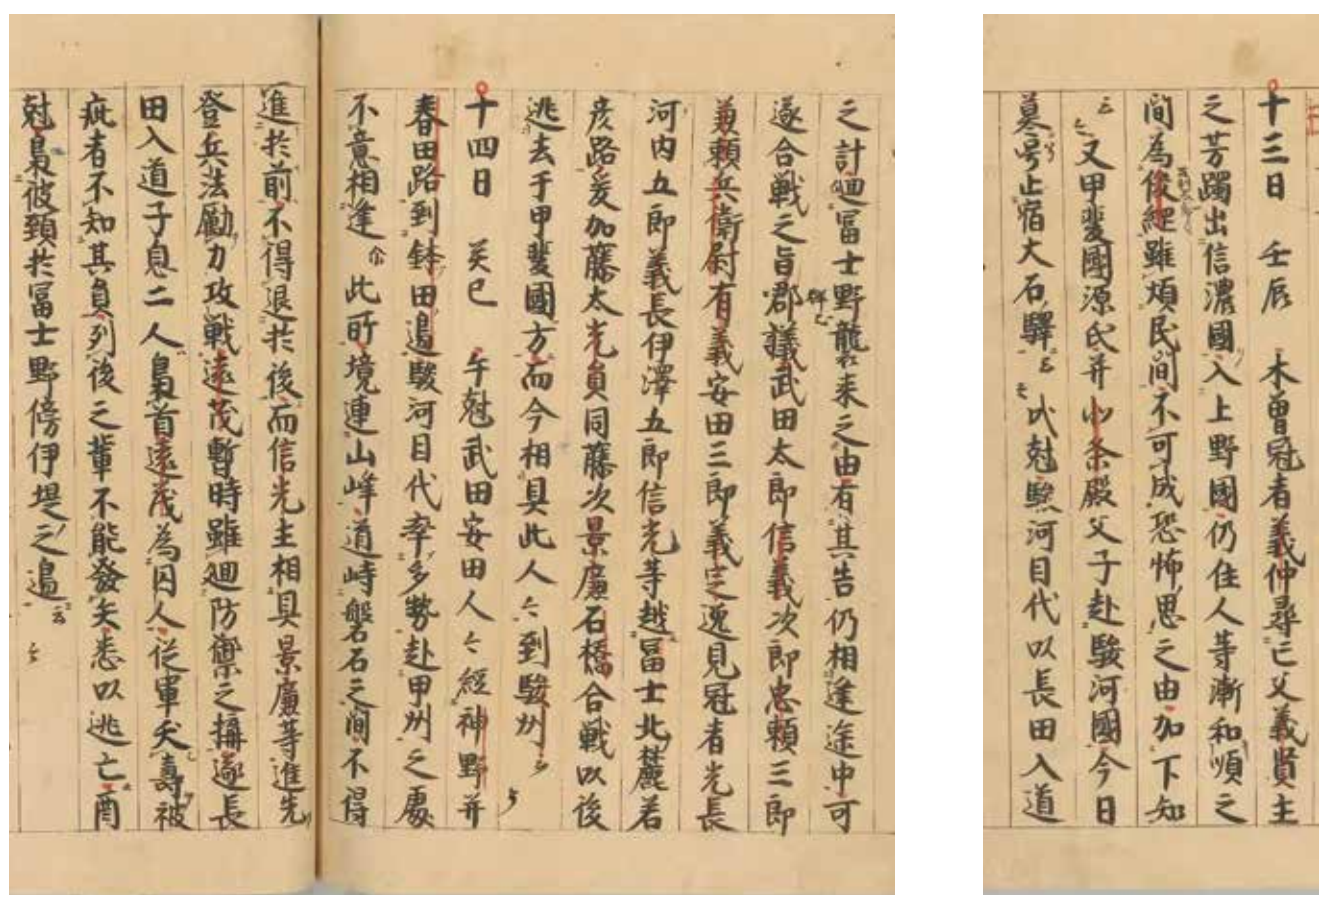 十三日 壬辰 木曽冠者義仲尋亡父義賢主
之芳躅出信濃國入上野國仍住人等漸和順之
間為俊綱雖煩民間不可成恐怖思之由加下知
云々又甲斐國源氏并北条殿父子赴駿河國今日
暮兮止宿大石驛云々戌尅駿河目代以長田入道
之計廻冨士野襲来之由有其告仍相逢途中可
遂合戦之旨群議武田太郎信義次郎忠頼三郎
兼頼兵衛尉有義安田三郎義定逸見冠者光長
河内五郎義長伊澤五郎信光等越冨士北麓若
彦路爰加藤太光員同藤次景廉石橋合戦以後
逃去于甲斐國方而今相具此人々到駿州云々
十四日 癸巳 午尅武田安田人々經神野并
春田路到鉢田邉駿河目代率多勢赴甲州之處
不意相逢於此所境連山峰道峙磐石之間不得
進於前不得退於後而信光主相具景廉等進先
登兵法勵力攻戦遠茂暫時雖廻防禦之搆遂長
田入道子息二人梟首遠茂為囚人従軍夭壽被
疵者不知其員列後之輩不能發矢悉以逃亡酉
尅梟彼頚於冨士野傍伊堤之邉云々